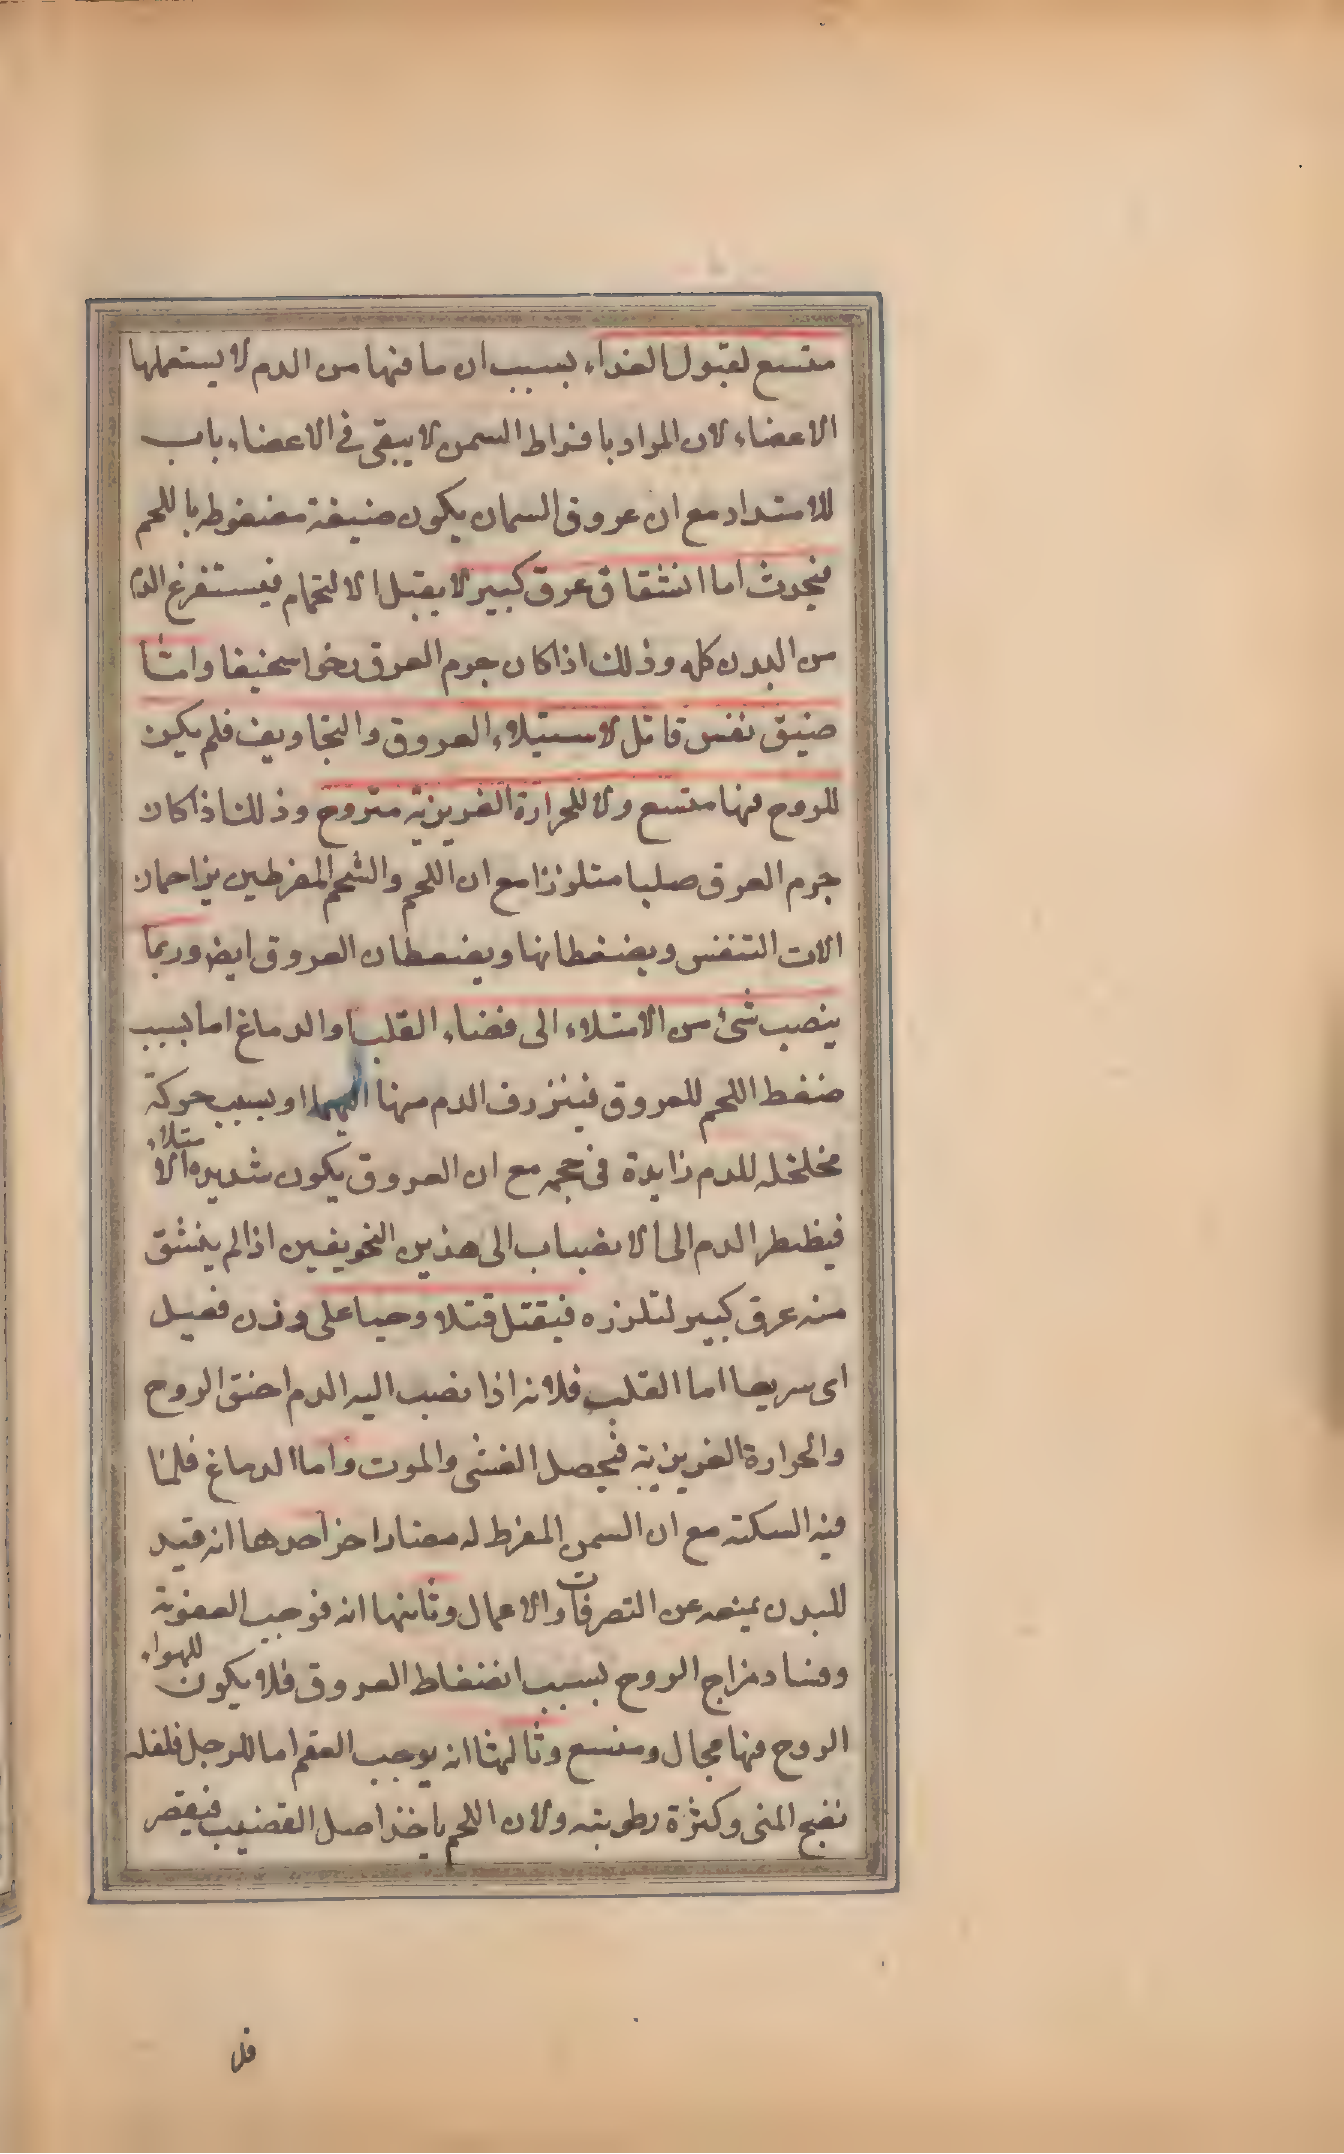 متسع لقبول الغذاء بسبب ان ما فيها من الدم لا يستعملها
الاعضاء لان المراد بافراط السمن لا يبقى فى الاعضاء باب
للامتداد مع ان عروق السمان يكون ضيقة مضغوطه باللحم
فيحدث اما انشقاق عرق كبير لا يقبل الالتحام فيستفرغ الدم
من البدن كله وذلك اذا كان جرم العرق رخوا سخيفا واما
ضيق نفس قاتل لاستيلاء العروق والتجاويف فلم يكن
للروح فيها متسع ولا للحرارة الغريزية متروح وذلك اذا كان
جرم العرق صلبا متلززا مع ان اللحم والشحم المفرطين يزاحمان
الات التنفس ويضغطانها ويضغطان العروق ايض وربما
ينصب شئ من الامتلاء الى فضاء القلب او الدماغ اما بسبب
ضغط اللحم للعروق فينزرف الدم منها اليهما او بسبب حركة
مخلخله للدم زايدة فى حجمه مع ان العروق يكون شديده الامتلاء
فيظطر الدم الى الانصباب الى هذين التجويفين اذا لم ينشق
منه عرق كبير لتلززه فيقتل قتلا وحيا على وزن فعيل
اى سريعا اما القلب فلانه اذا نصب اليه الدم اختنق الروح
والحرارة الغريزية فيحصل الغشى والموت واما الدماغ فلما
فيه السكته مع ان السمن المفرط له مضار اخر احدها انه قيد
للبدن يمنعه عن التصرفات والاعمال وثانيها انه يوجب العفونة
وفساد مزاج الروح بسبب انضغاط العروق فلا يكون للهواء
الروح فيها مجال ومتسع وثالثها انه يوجب العقم اما للرجل فلقله
نضج المنى وكثرة رطوبته ولان اللحم ياخذ اصل القضيب فيقصر
فلا